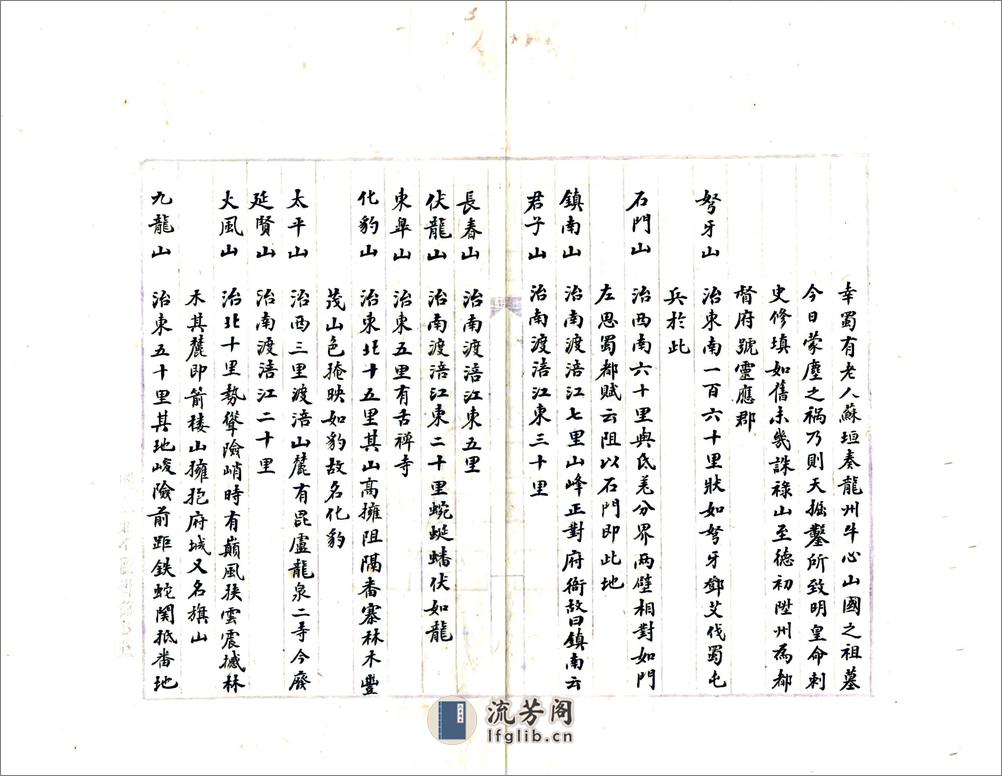 幸蜀有老人蘇垣奏龍州牛心山國之祖墓
今日蒙塵之禍乃則天掘鑿所致明皇命刺
史修填如舊未幾誅祿山至德初陞州為都
督府號靈應郡
弩牙山 治東南一百六十里狀如弩牙鄧艾伐蜀屯
兵於此
石門山 治西南六十里與氐羌分界兩壁相對如門
左思蜀都賦云阻以石門即此地
鎮南山 治南渡涪江七里山峰正對府衙故曰鎮南云
君子山 治南渡涪江東三十里
長春山 治南渡涪江東五里
伏龍山 治南渡涪江東二十里蜿蜒蟠伏如龍
東皐山 治東五里有古禪寺
化豹山 治東北十五里其山高擁阻隔番寨林木豐
茂山色掩映如豹故名化豹
太平山 治西三里渡涪山麓有毘盧龍泉二寺今廢
延賢山 治南渡涪江二十里
火風山 治北十里勢聳險峭時有巔風挾雲震撼林
木其麓即箭楼山擁抱府城又名旗山
九龍山 治東五十里其地峻險前距鉄蛇関抵番地
流芳阁
lfglib.cn